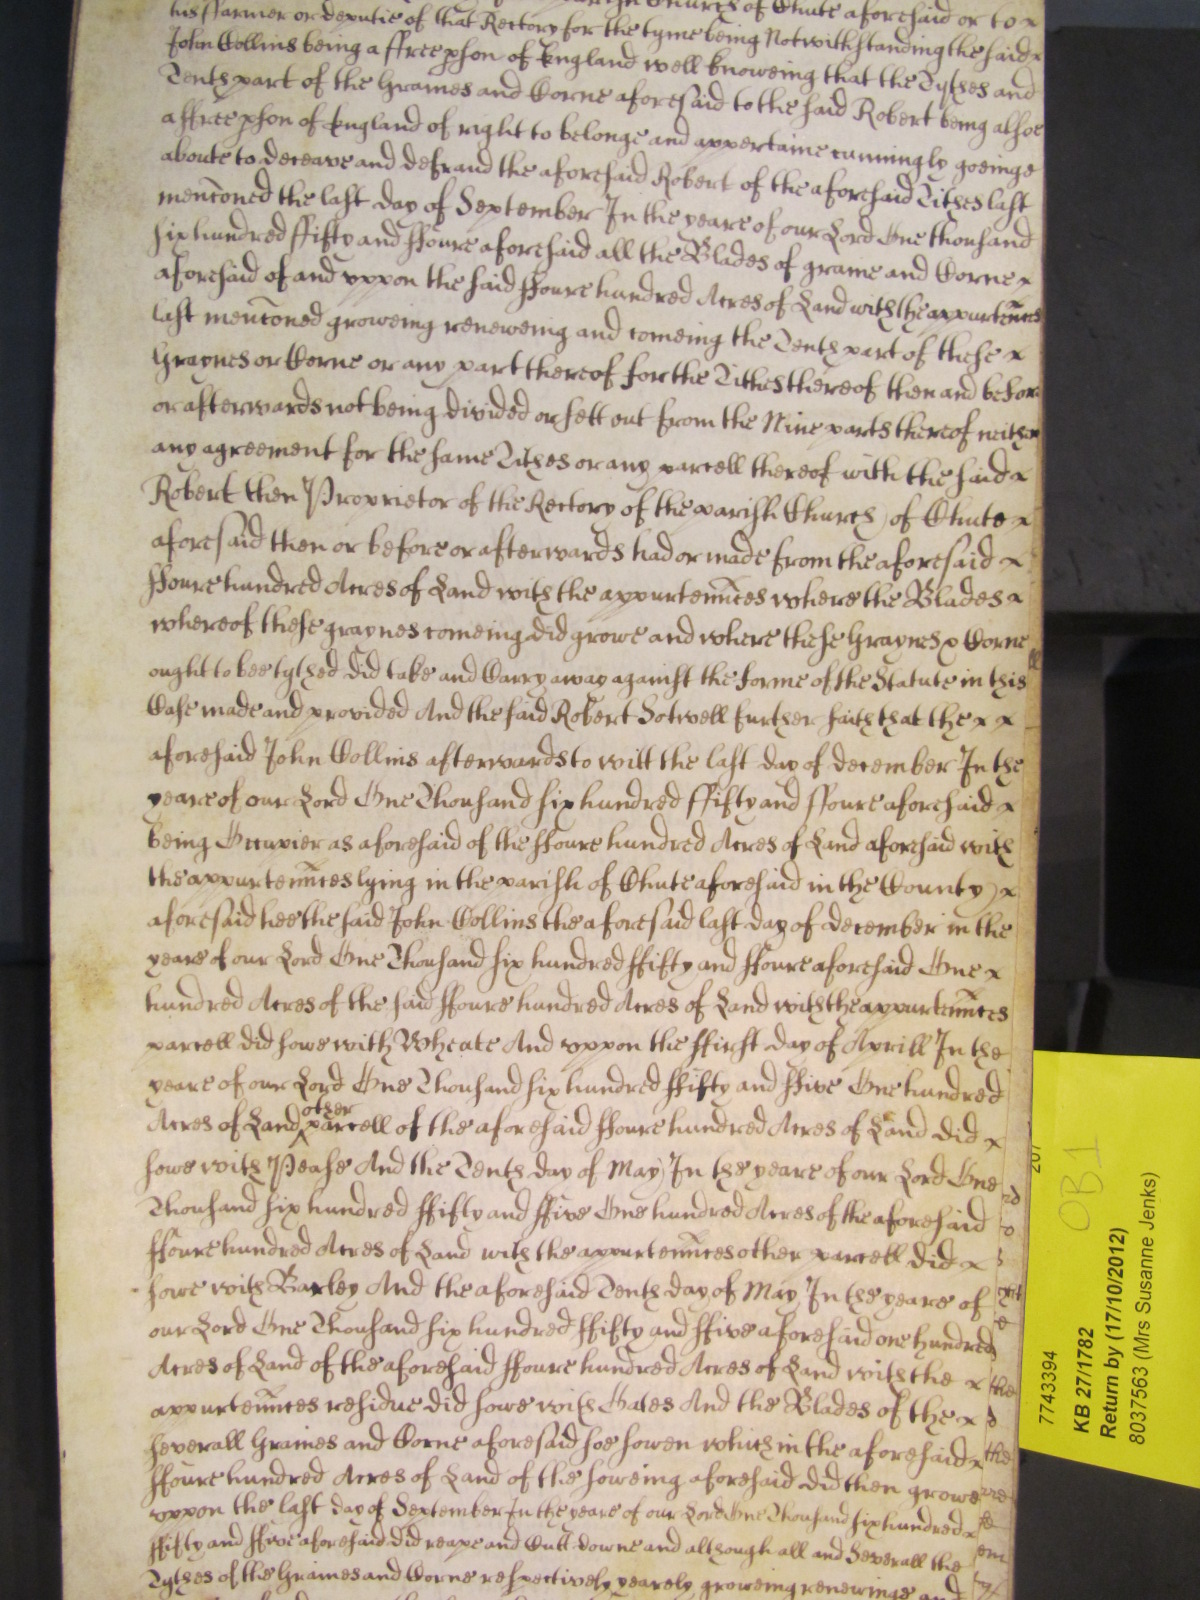 parish Church of Chute aforesaid or to x
his ffarmer or deputie of that Rectory for the tyme being Notwithstanding the said x
John Collins being a ffree pson of England well knoweing that the Tythes and
Tenth part of the Graines and Corne aforesaid to the said Robert being alsoe
a ffree pson of England of right to belonge and appertaine cunningly goeinge
aboute to deceave and defraud the aforesaid Robert of the aforesaid Tithes last
mencõned the last day of September In the yeare of our Lord One thousand
six hundred ffifty and ffoure aforesaid all the Blades of graine and Corne x
aforesaid of and uppon the said ffoure hundred Acres of Land with the appurtenñces
last mencõned groweing reneweing and comeing the Tenth part of these x
Graynes or Corne or any part thereof for the Tithes thereof then and before
or afterwards not being divided or sett out from the Nine parts thereof neither
any agreement for the same Tithes or any parcell thereof with the said x
Robert then Proprietor of the Rectory of the parish Church of Chute x
aforesaid then or before or afterwards had or made from the aforesaid x
ffoure hundred Acres of Land with the appurtenñces where the Blades x
whereof these graynes comeing did growe and where these Graynes & Corne
ought to bee tythed did take and Carry away against the forme of the Statute in this
Case made and provided And the said Robert Sotwell further saith that the x x
aforesaid John Collins afterwards to witt the last day of december In the
yeare of our Lord One Thousand six hundred ffifty and ffoure aforesaid x
being Occupier as aforesaid of the ffoure hundred Acres of Land aforesaid with
the appurtenñces lying in the parish of Chute aforesaid in the County x
aforesaid hee the said John Collins the aforesaid last day of december in the
yeare of our Lord One Thousand six hundred ffifty and ffoure aforesaid One x
hundred Acres of the said ffoure hundred Acres of Land with the appurtenñces
parcell did sowe with Wheate And uppon the ffirst day of Aprill In the
yeare of our Lord One Thousand six hundred ffifty and ffive One hundred
Acres of Land other parcell of the aforesaid ffoure hundred Acres of Land did x
sowe with Pease And the Tenth day of May In the yeare of our Lord One
Thousand six hundred ffifty and ffive One hundred Acres of the aforesaid
ffoure hundred Acres of Land with the appurtenñces other parcell did x
sowe with Barley And the aforesaid Tenth day of May In the yeare of
our Lord One Thousand six hundred ffifty and ffive aforesaid one hundred
Acres of Land of the aforesaid ffoure hundred Acres of Land with the x
appurtenñces residue did sowe with Oates And the Blades of the x
severall Graines and Corne aforesaid soe sowen which in the aforesaid x
ffoure hundred Acres of Land of the soweing aforesaid did then growe
uppon the last day of September In the yeare of our Lord One Thousand six hundred x
ffifty and ffive aforesaid did reape and Cutt downe and although all and Severall the
Tythes of the Graines and Corne respectively yearely groweing renewinge and
207
OB1
7743394
KB 27/1782
Return by (17/10/2012)
8037563 (Mrs Susanne Jenks)